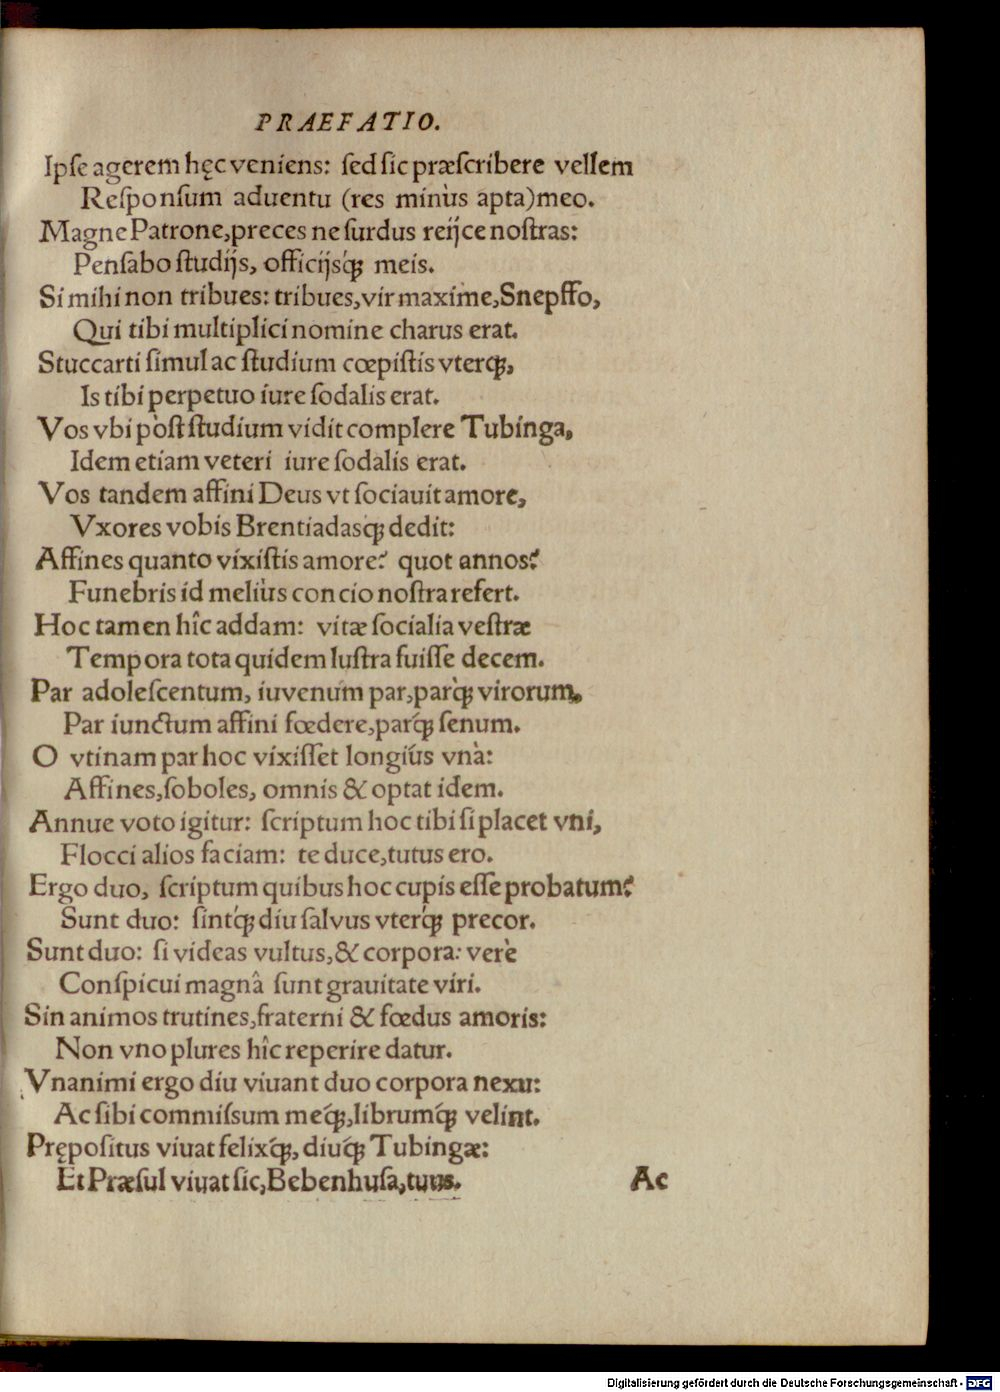 PRAEFATIO.
Ipſe agerem hęc veniens: ſed ſic præſcribere vellem
Reſponſum aduentu (res minùs apta)meo.
Magne Patrone,preces ne ſurdus reijce noſtras:
Penſabo ſtudijs, officijsq́; meis.
Si mihi non tribues: tribues,vir maxime,Snepffo,
Qui tibi multiplici nomine charus erat.
Stuccarti ſimul ac ſtudium cœpiſtis vterq;,
Is tibi perpetuo iure ſodalis erat.
Vos vbi pòſt ſtudium vidit complere Tubinga,
Idem etiam veteri iure ſodalis erat.
Vos tandem affini Deus vt ſociauit amore,
Vxores vobis Brentiadasq; dedit:
Affines quanto vixiſtis amore? quot annos?
Funebris id meliùs concio noſtra refert.
Hoc tamen hîc addam: vitæ ſocialia veſtræ
Tempora tota quidem luſtra fuiſſe decem.
Par adoleſcentum, iuvenum par,parq̀; virorum,
Par iunctum affini fœdere,parq́; ſenum.
O vtinam par hoc vixiſſet longiús vnà:
Affines,ſoboles, omnis & optat idem.
Annue voto igitur: ſcriptum hoc tibi ſi placet vni,
Flocci alios faciam: te duce,tutus ero.
Ergo duo, ſcriptum quibus hoc cupis eſſe probatum?
Sunt duo: ſintq́; diu ſalvus vterq́; precor.
Sunt duo: ſi videas vultus,& corpora: verè
Conſpicui magnâ ſunt grauitate viri.
Sin animos trutines,fraterni & fœdus amoris:
Non vno plures hîc reperire datur.
Vnanimi ergo diu viuant duo corpora nexu:
Ac ſibi commiſſum meq́;,librumq́; velint.
Prępoſitus viuat felixq́;, diuq́; Tubingæ:
Et Præſul viuat ſic,Bebenhuſa,tuus.
Ac
Digitalisierung gefördert durch die Deutsche Forschungsgemeinschaft - DFG